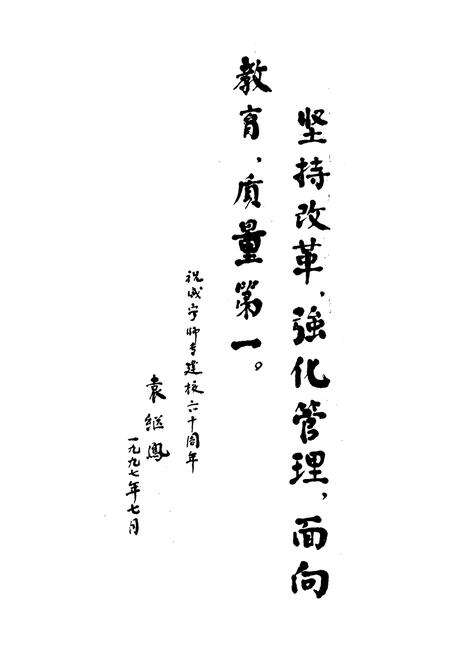 坚持改革、強化管理，面向
教育、质量第一。
祝咸宁师专建校六十周年
袁继凤
一九九七年七月